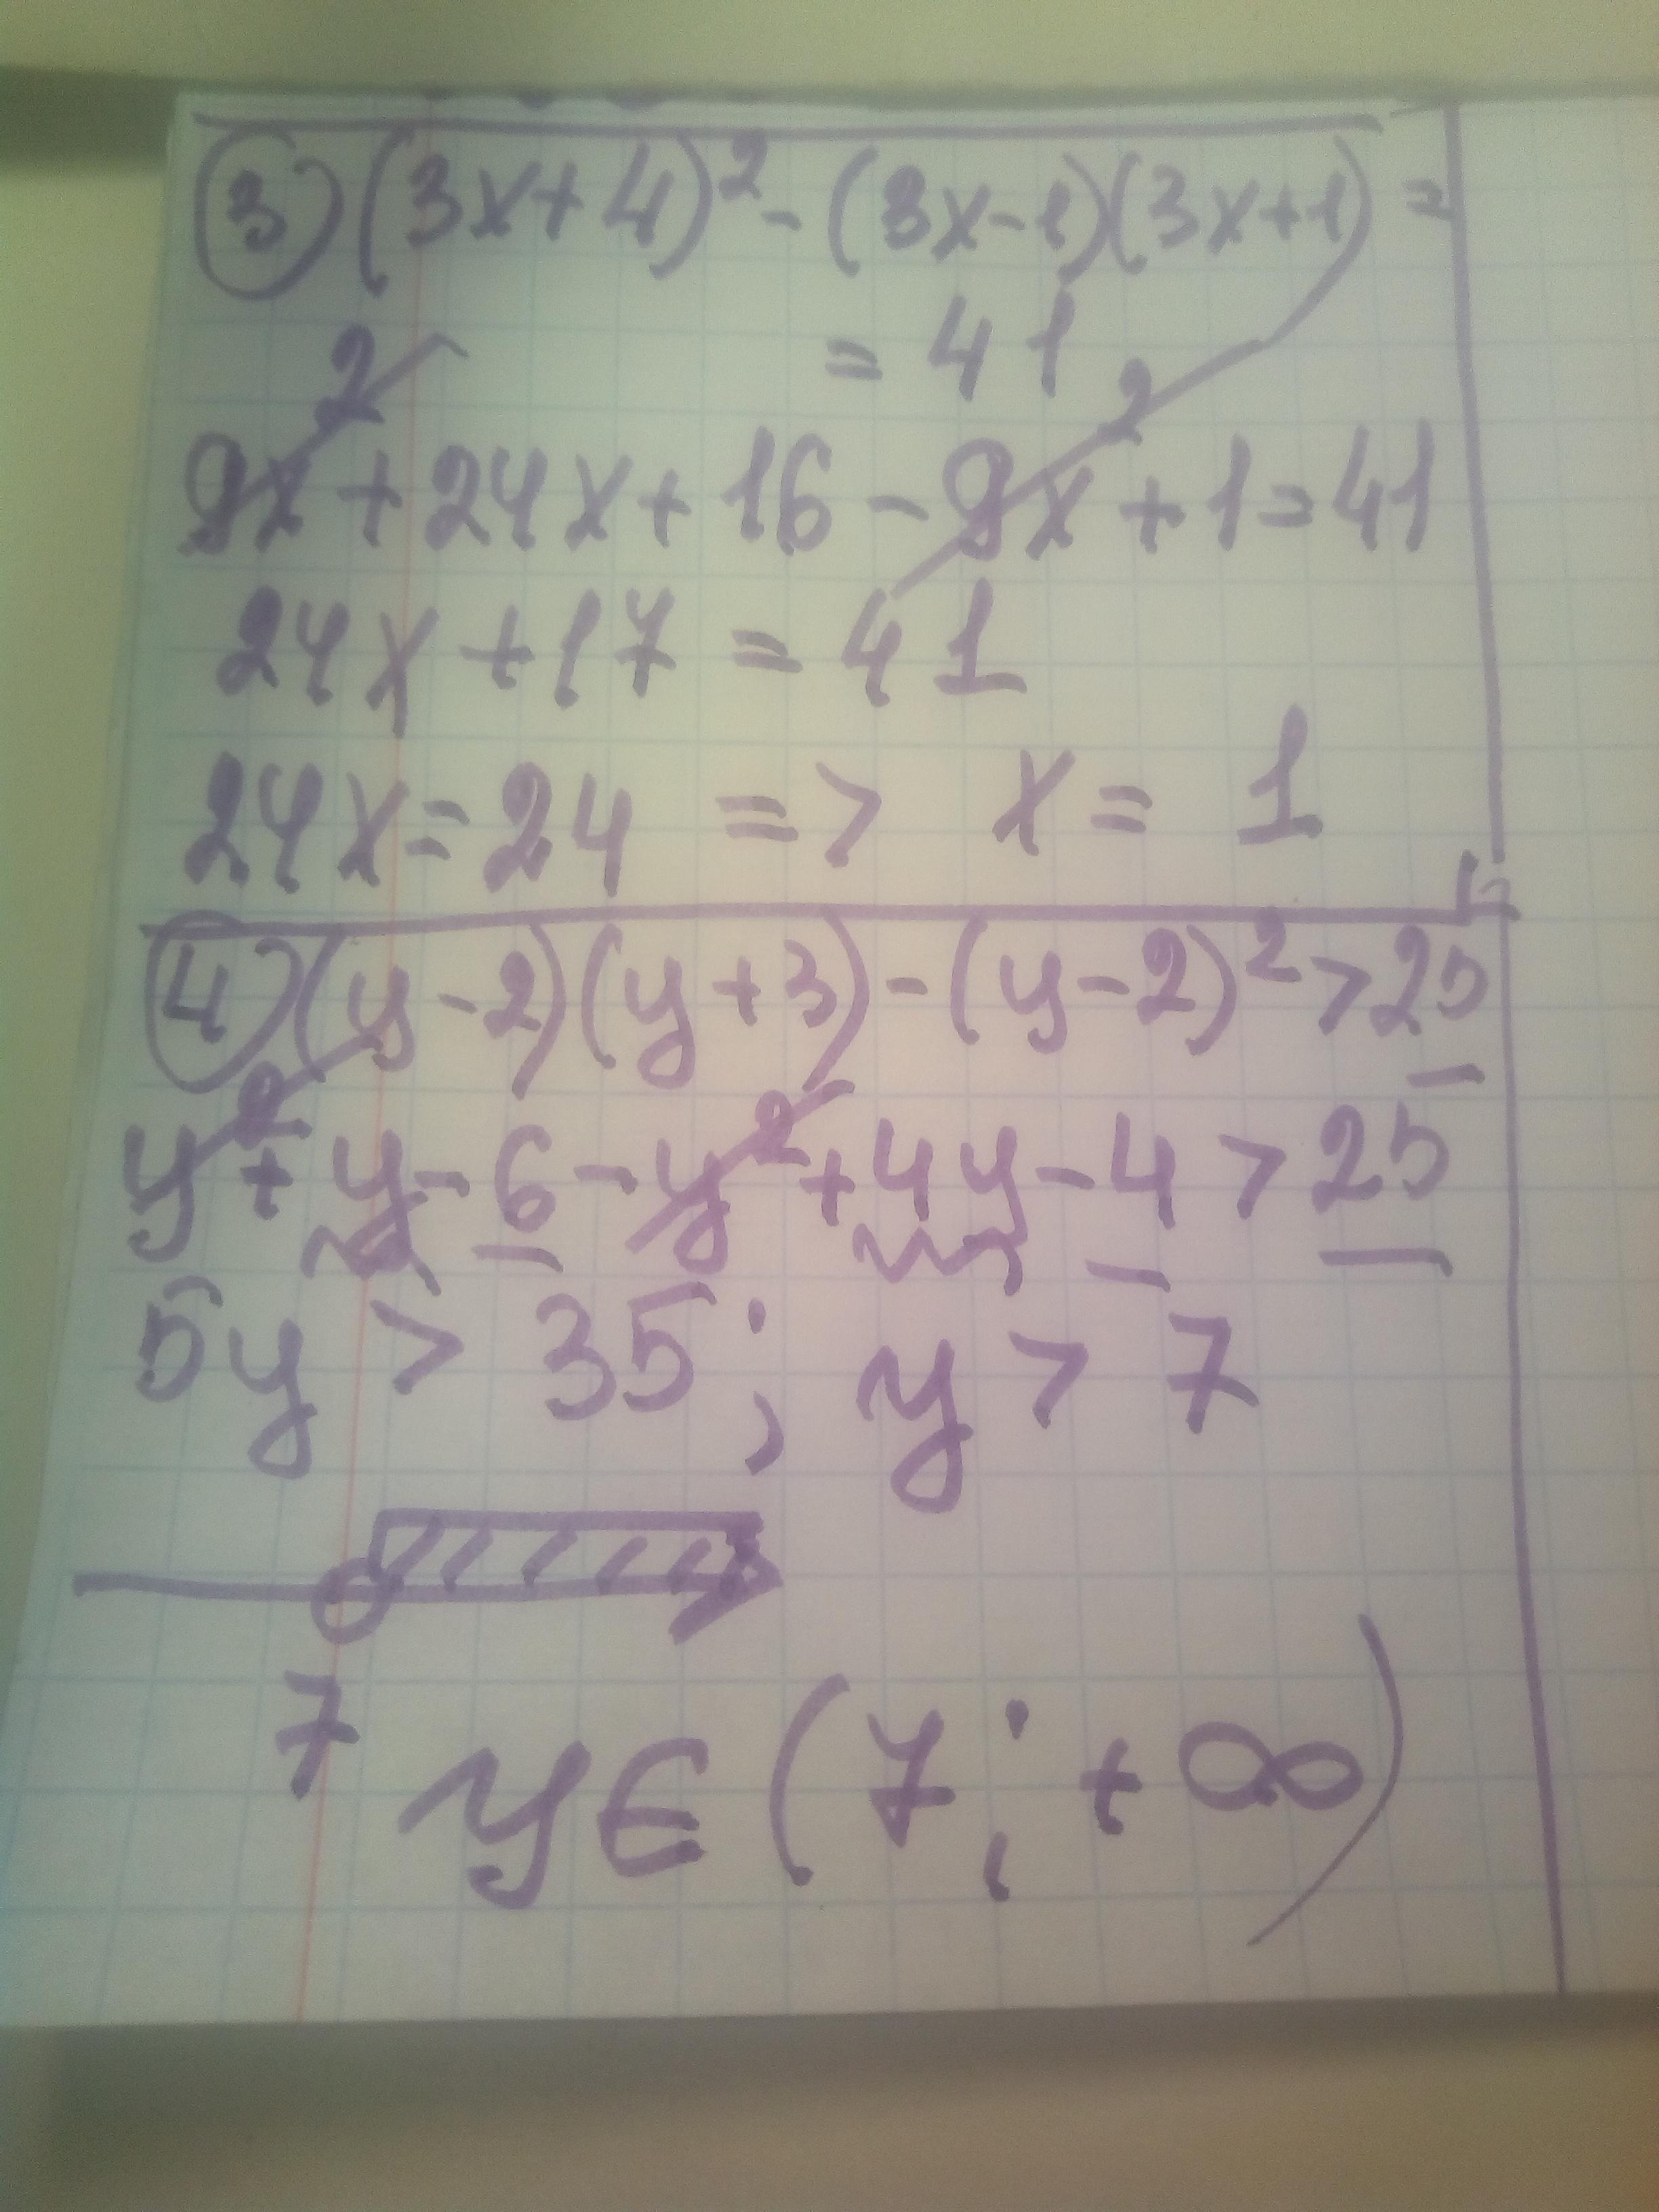 ③ (3x+4)² - (3x-1)(3x+1) =
= 41
9x² + 24x + 16 - 9x² + 1 = 41
24x + 17 = 41
24x = 24 => x = 1
④ (y-2)(y+3) - (y-2)² > 25
y² + y - 6 - y² + 4y - 4 > 25
5y > 35; y > 7
7
y ∈ (7; +∞)